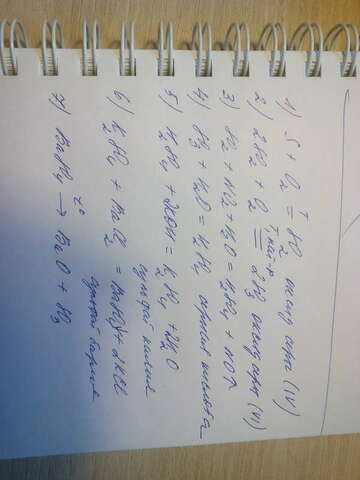 1) S + O₂ =ᵀ SO₂ оксид серы (IV)
2) 2SO₂ + O₂ = 2SO₃ оксид серы (VI)
T, кат-р
3) SO₂ + NO₂ + H₂O = H₂SO₄ + NO↑
4) SO₃ + H₂O = H₂SO₄ серная кислота
5) H₂SO₄ + 2KOH = K₂SO₄ + 2H₂O
сульфат калия
6) K₂SO₄ + BaCl₂ = BaSO₄↓ + 2KCl
сульфат бария
7) BaSO₄ →ᵗ° BaO + SO₃